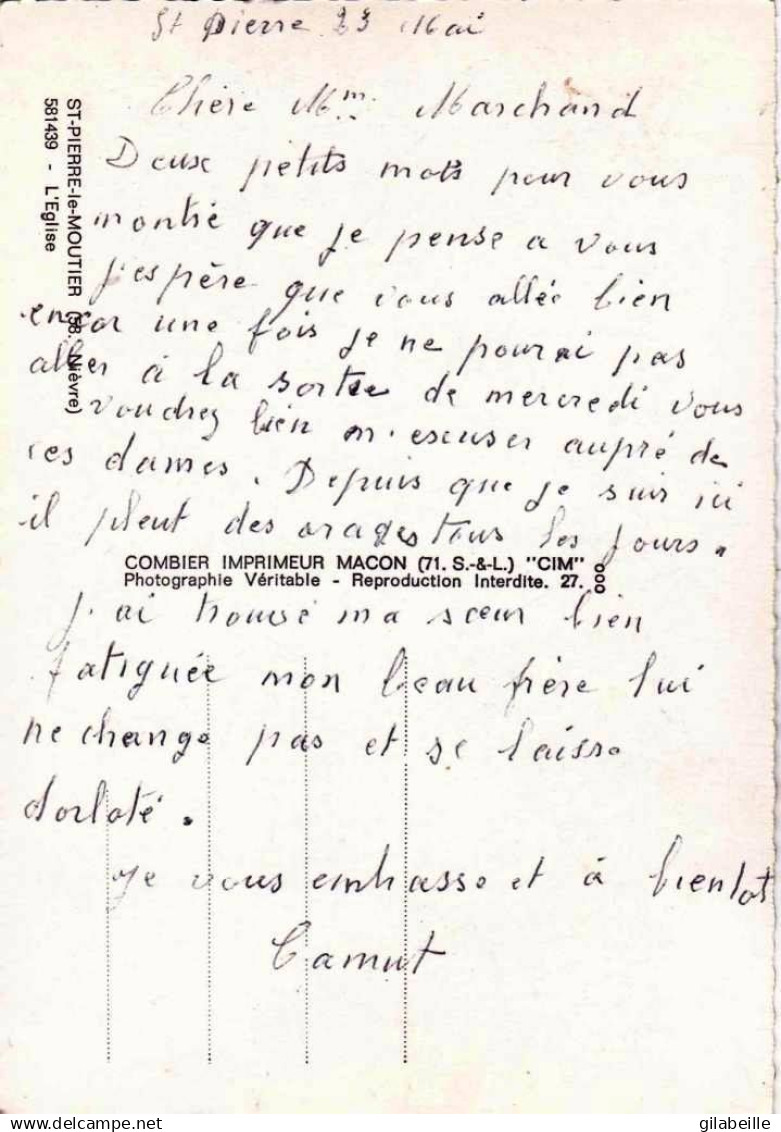 St Pierre 23 Mai
Chère Mme Marchand
Deux petits mots pour vous
montré que je pense a vous
j'espère que vous allée bien
encor une fois je ne pourai pas
aller à la sortee de mercredi vous
voudrez bien m'escuser aupré de
ces dames. Depuis que je suis ici
il pleut des orages tous les jours.
j'ai trouvé ma sœur bien
fatiguée mon beau frère lui
ne change pas et se laisse
dorloté.
Je vous embrasse et à bientot
Camut
ST-PIERRE-le-MOUTIER (58. Nièvre)
581439 - L'Eglise
COMBIER IMPRIMEUR MACON (71. S.-&-L.) "CIM"
Photographie Véritable - Reproduction Interdite. 27. 000
gilabeille